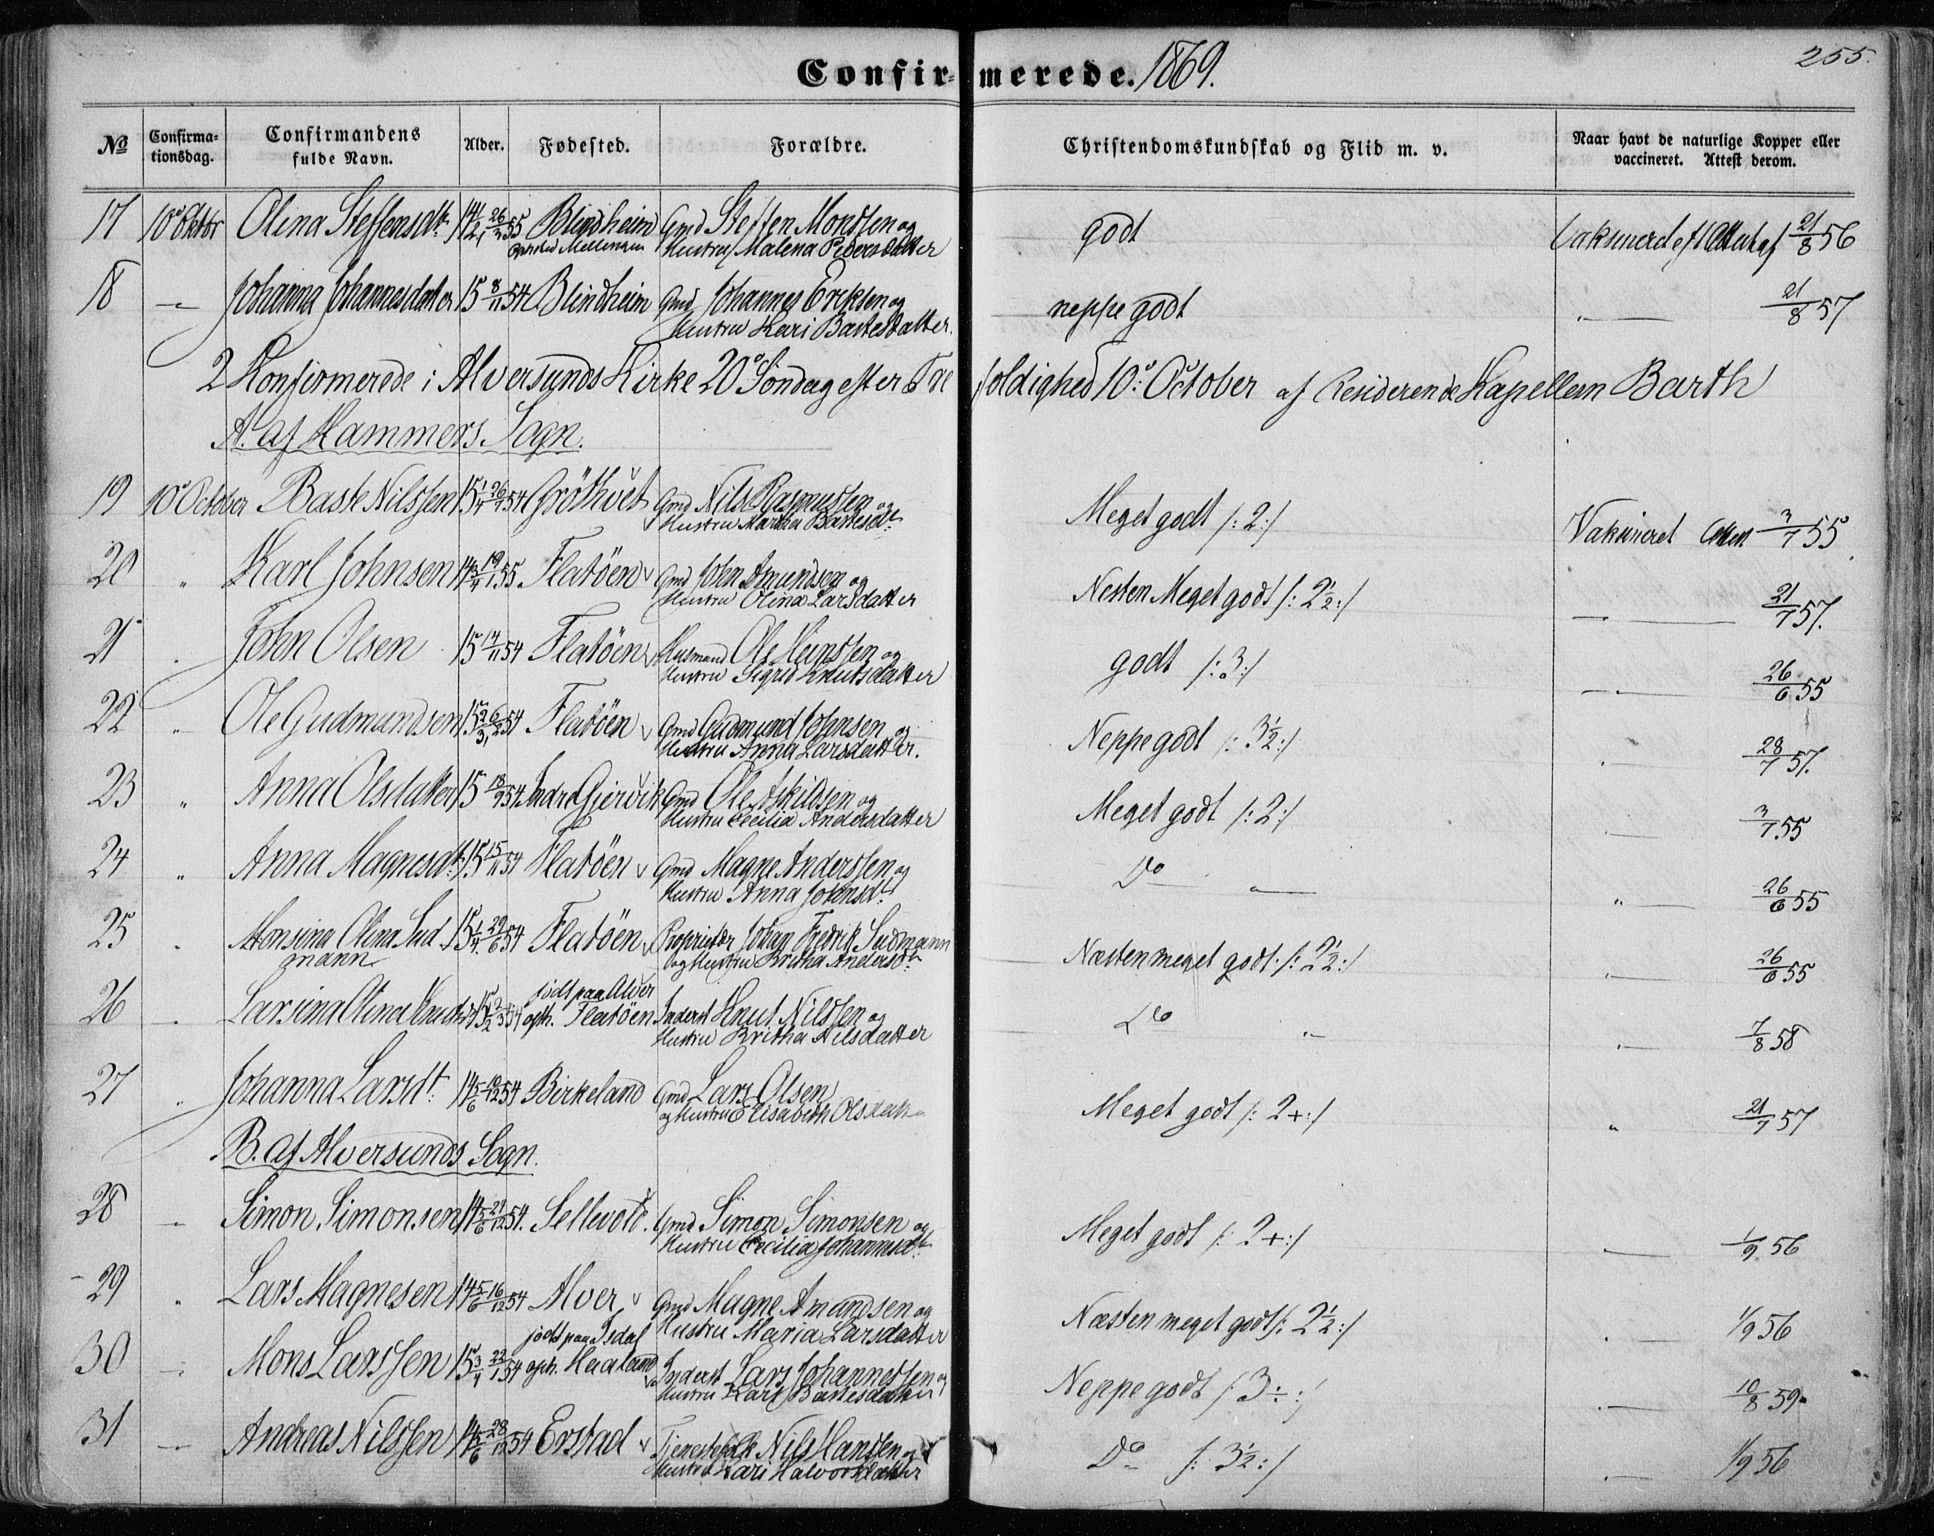 Confirmerede. 1869.
255.
No Confirmationsdag. Confirmandens fulde Navn. Alder. Fødested. Forældre. Christendomskundskab og Flid m. v. Naar havt de naturlige Kopper eller vaccineret. Attest derom.
17 10de Oktbr Olina Steffensdtr 14 1/2 26/3 55 Blindheim Gmd Steffen Mondsen og godt 21/8 56
Mellingen Hustru Malena Pedersdatter
18 " Johanna Johannesdatter 15 8/11 54 Blindheim Gmd Johannes Eriksen og neppe godt " 21/8 57
Hustru Kari Bastesdatter.
2 Konfirmerede i Alversunds Kirke 20de Søndag efter Trefoldighed 10de October af Residerende Kapellan Barth
A. af Hammers Sogn.
19 10de October Baste Nilssen 15 1/4 26/7 54 Gröthvet Gmd Nils Rasmussen og Meget godt /: 2 :/ Vaksineret Attest 3/7 55
Hustru Martha Bastesdtr
20 " Karl Johnsen 14 3/4 19/1 55 Flatöen Gmd John Amundsen og Nesten Meget godt /: 2 1/2 :/ " 21/7 57.
Hustru Olina Larsdatter
21 " John Olsen 15 14/11 54 Flatöen Husmand Ole Monssen og godt /: 3 :/ " 26/6 55
Hustru Sigrid Knutsdatter
22 " Ole Gudmundsen 15 2/3 6/2 54 Flatöen Gmd Gudmund Johnsen og Neppe godt /: 3 1/2 :/ " 28/7 57.
Hustru Anna Larsdatter.
23 " Anna Olsdatter 15 18/9 54 Indre Gjervik Gmd Ole Askildsen og Meget godt /: 2 :/ " 3/7 55
Hustru Cecilia Andersdatter
24 " Anna Magnesdtr 15 15/11 54 Flatöen Gmd Magne Anderssen og Do " " 26/6 55
Hustru Anna Johnsdtr
25 " Monsina Olina Sudmann 15 1/4 29/6 54 Flatöen Proprietær Johan Fredrik Sudmann Næsten meget godt /: 2 1/2 :/ " 26/6 55
og Hustru Britha Andersdtr
26 " Larsina Olina Knutsdtr 15 1/2 2/3 54 födt paa Alver oph. Flatöen Inderst Knut Nilssen og Do " " 7/8 58
Hustru Britha Nilsdatter
27 " Johanna Larsdt. 14 5/6 10/12 54 Birkeland Gmd Lars Olsen Meget godt /: 2+ :/ " 21/7 57
og Hustru Elisabeth Olsdatter
B. af Alversunds Sogn.
28 " Simon Simonsen 14 5/6 21/12 54. Sellevold. Gmd Simon Simonsen og Meget godt /: 2+ :/ " 1/9 56
Hustru Cecilia Johannesdtr
29 " Lars Magnesen 14 5/6 16/12 54 Alver Gmd Magne Amundsen og Næsten meget godt /: 2 1/2 :/ " 1/9 56
Hustru Maria Larsdatter
30 " Mons Larssen 15 3/4 22/1 54 födt paa Isdal oph. Haaland Inderst Lars Johannessen og Neppe godt /: 3 ÷ :/ " 10/8 59
Hustru Kari Bastesdatter
31 " Andreas Nilssen 14 5/6 28/12 54 Erstad Tjenestefolk Nils Hanssen og Do /: 3 1/2 :/ " 1/9 56
Hustru Kari Halvorsdatter